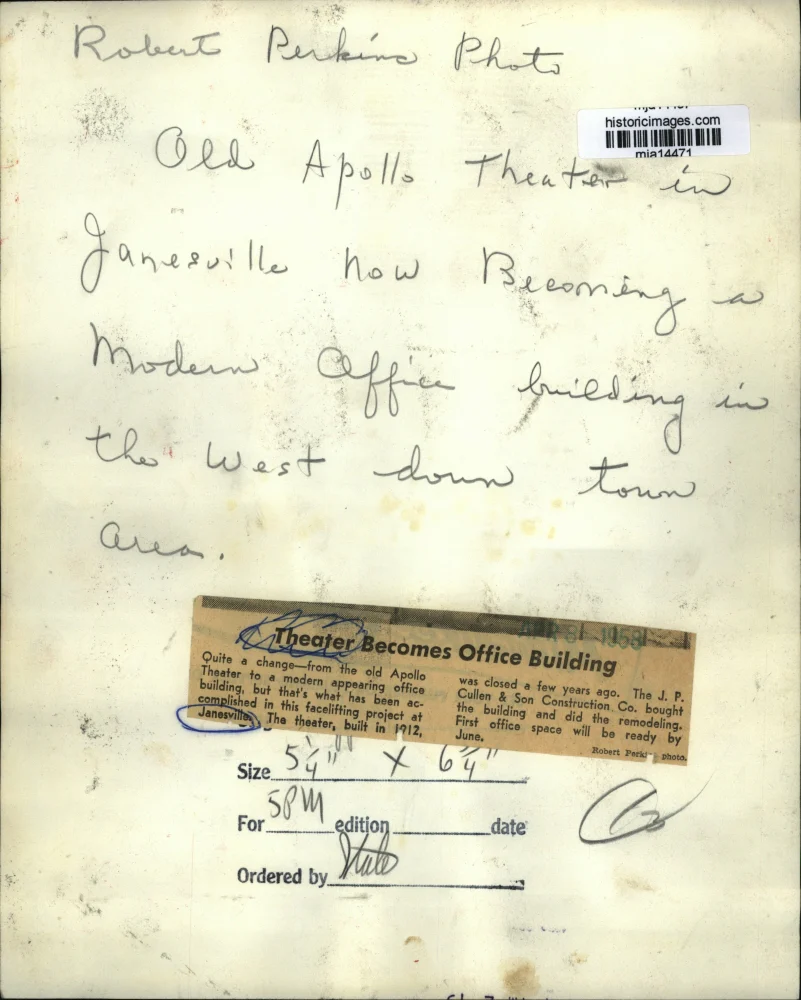 Robert Perkins Photo
historicimages.com
mja14471
Old Apollo Theater in
Janesville now Becoming a
Modern Office building in
the West down town
area.
APR 3 1958
Theater Becomes Office Building
Quite a change—from the old Apollo
Theater to a modern appearing office
building, but that's what has been ac-
complished in this facelifting project at
Janesville. The theater, built in 1912,
was closed a few years ago. The J. P.
Cullen & Son Construction Co. bought
the building and did the remodeling.
First office space will be ready by
June.
Robert Perkins photo.
Size 5 1/4" X 6 3/4"
For 5PM edition date
Ordered by State